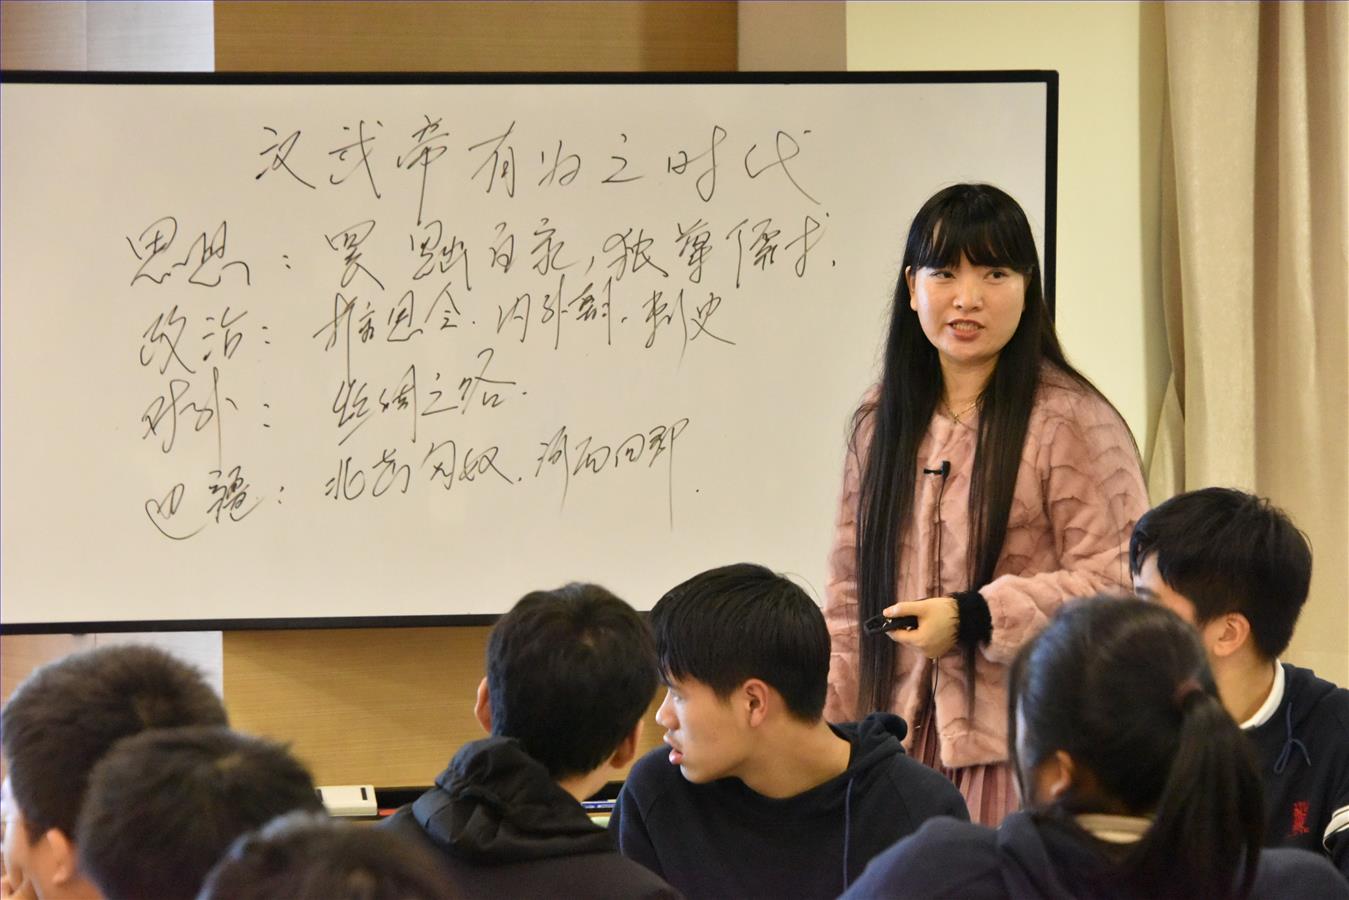 汉武帝有为之时代
思想：罢黜百家，独尊儒术.
政治：推恩令.内外制.刺史
对外：丝绸之路.
边疆：北击匈奴.河西四郡.